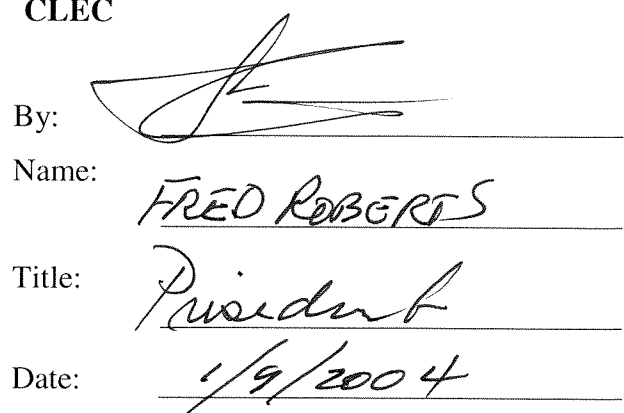 CLEC
By:
Name: FRED ROBERTS
Title: President
Date: 1/9/2004